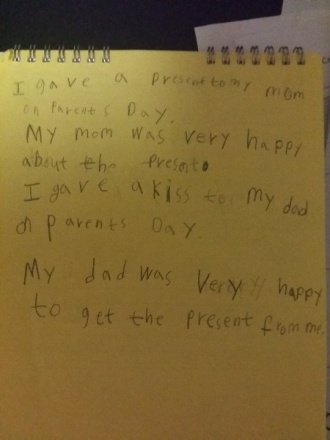 I gave a present to my mom
on Parent's Day.
My mom was very happy
about the present.
I gave a kiss to my dad
on parents Day.
My dad was very happy
to get the present from me.